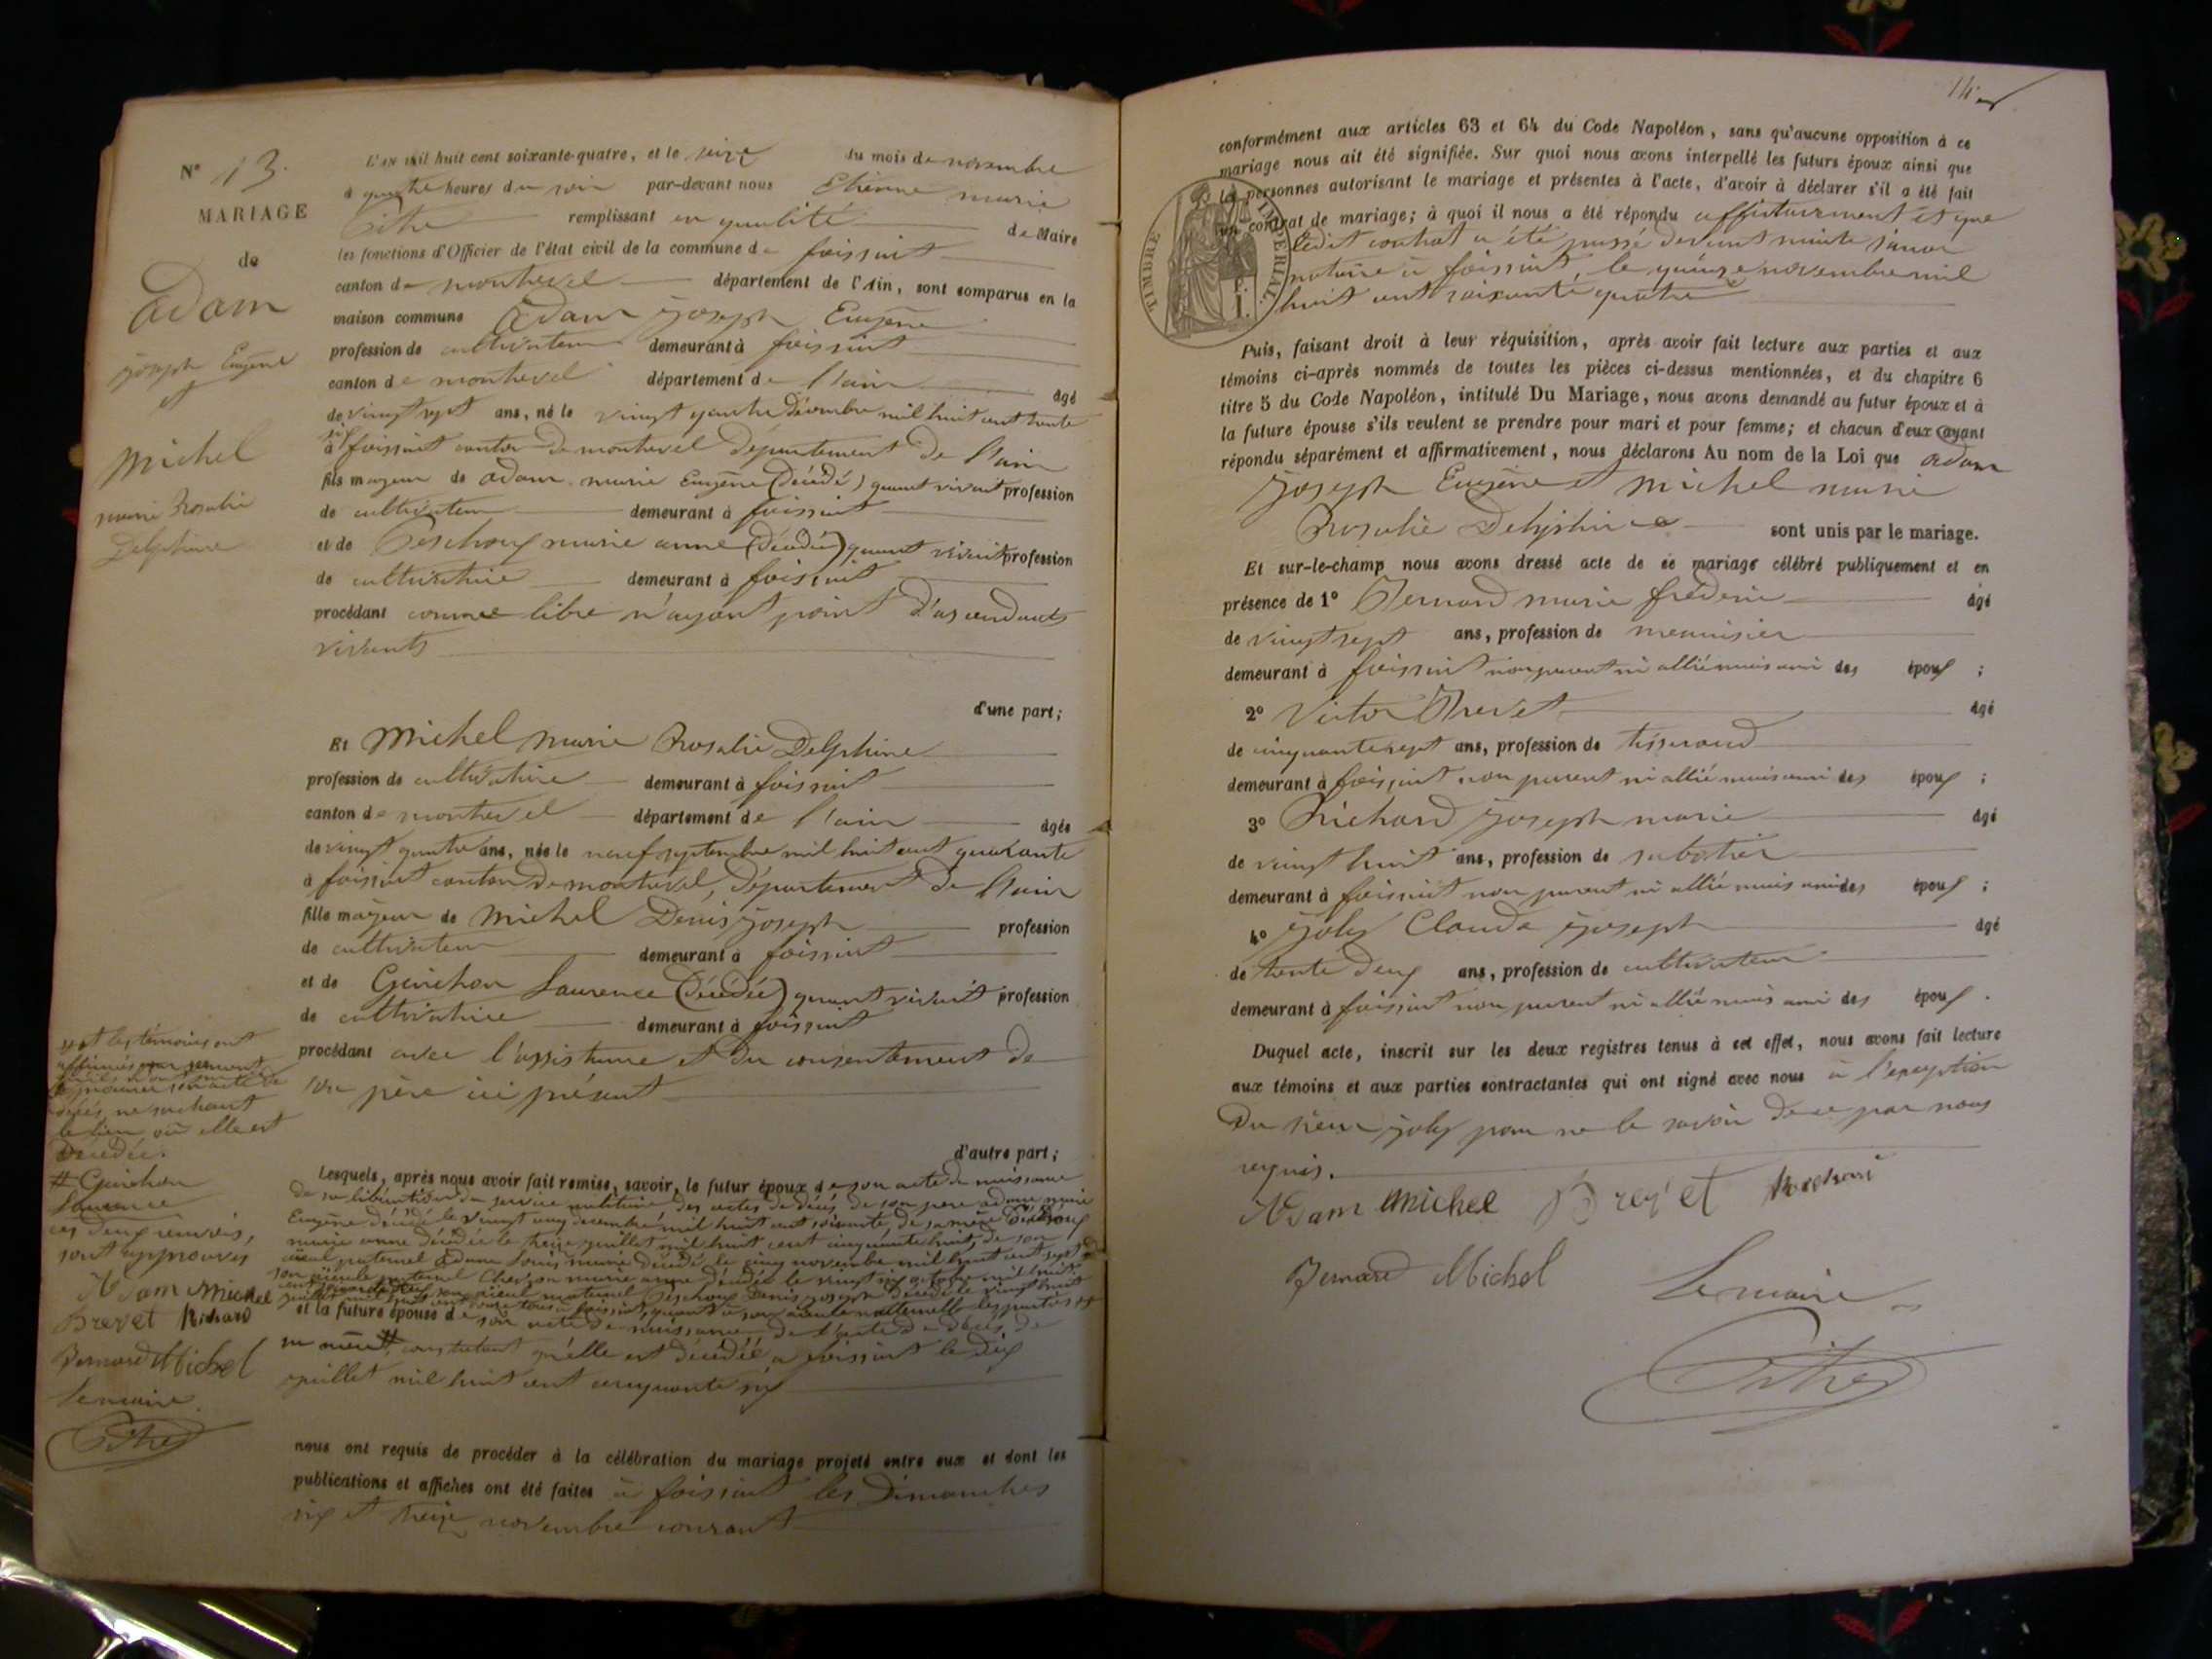 N° 13.
MARIAGE
de
Adam
joseph Eugène
et
Michel
marie Rosalie
Delphine
L'an mil huit cent soixante-quatre, et le seize du mois de novembre
à quatre heures du soir par-devant nous Etienne marie
remplissant en qualité de Maire
les fonctions d'Officier de l'état civil de la commune de foissiat
canton de montrevel département de l'Ain, sont comparus en la
maison commune Adam joseph Eugène
profession de cultivateur demeurant à foissiat
canton de montrevel département de l'ain âgé
de vingt sept ans, né le vingt quatre décembre mil huit cent trente
six
à foissiat canton de montrevel département de l'ain
fils majeur de adam marie Eugène (décédé) quand vivait profession
de cultivateur demeurant à foissiat
et de marie anne (décédée) quand vivait profession
de cultivatrice demeurant à foissiat
procédant comme libre n'ayant point d'ascendants
vivants
d'une part;
Et Michel marie Rosalie Delphine
profession de cultivatrice demeurant à foissiat
canton de montrevel département de l'ain âgée
de vingt quatre ans, née le neuf septembre mil huit cent quarante
à foissiat canton de montrevel, département de l'ain
fille majeur de Michel Denis joseph profession
de cultivateur demeurant à foissiat
et de Guichon Laurence (décédée) quand vivait profession
de cultivatrice demeurant à foissiat
procédant avec l'assistance et du consentement de
son père ici présent
d'autre part;
Lesquels, après nous avoir fait remise, savoir, le futur époux de son acte de naissance
de sa libération du service militaire des actes de décès de son père adam marie
Eugène décédé le vingt cinq décembre mil huit cent soixante, de sa mère
marie anne décédée le treize juillet mil huit cent cinquante huit, de son
aïeul paternel Adam Louis marie décédé le cinq novembre mil huit cent sept
son aïeule paternel marie anne décédée le vingt six octobre mil huit
son aïeul maternel Denis joseph décédé le vingt huit
à foissiat, quant à son aïeule maternelle les parties
et la future épouse de son acte de naissance de l'acte de décès de
sa mère # constatant qu'elle est décédée à foissiat le dix
juillet mil huit cent cinquante six
nous ont requis de procéder à la célébration du mariage projeté entre eux et dont les
publications et affiches ont été faites à foissiat les dimanches
six et treize novembre courant
et les témoins ont
affirmés par serment
décès ne sachant
le lieu où elle est
décédée.
# Guichon
Laurence
ces deux renvois,
sont approuvés
Adam Michel
Brevet Richard
Bernard Michel
Le maire
14
conformément aux articles 63 et 64 du Code Napoléon, sans qu'aucune opposition à ce
mariage nous ait été signifiée. Sur quoi nous avons interpellé les futurs époux ainsi que
les personnes autorisant le mariage et présentes à l'acte, d'avoir à déclarer s'il a été fait
un contrat de mariage; à quoi il nous a été répondu affirmativement et que
ledit contrat a été passé devant maitre
notaire à foissiat, le quinze novembre mil
huit cent soixante quatre
TIMBRE IMPÉRIAL
Puis, faisant droit à leur réquisition, après avoir fait lecture aux parties et aux
témoins ci-après nommés de toutes les pièces ci-dessus mentionnées, et du chapitre 6
titre 5 du Code Napoléon, intitulé Du Mariage, nous avons demandé au futur époux et à
la future épouse s'ils veulent se prendre pour mari et pour femme; et chacun d'eux ayant
répondu séparément et affirmativement, nous déclarons Au nom de la Loi que adam
joseph Eugène et michel marie
Rosalie Delphine sont unis par le mariage.
Et sur-le-champ nous avons dressé acte de ce mariage célébré publiquement et en
présence de 1° Bernard marie frédéric âgé
de vingt sept ans, profession de menuisier
demeurant à foissiat non parent ni allié mais ami des époux;
2° Victor Brevet âgé
de cinquante sept ans, profession de tisserand
demeurant à foissiat non parent ni allié mais ami des époux;
3° Richard joseph marie âgé
de vingt huit ans, profession de sabotier
demeurant à foissiat non parent ni allié mais ami des époux;
4° joly Claude joseph âgé
de trente deux ans, profession de cultivateur
demeurant à foissiat non parent ni allié mais ami des époux.
Duquel acte, inscrit sur les deux registres tenus à cet effet, nous avons fait lecture
aux témoins et aux parties contractantes qui ont signé avec nous à l'exception
du sieur joly pour ne le savoir de ce par nous
requis.
Adam Michel Brevet Richard
Bernard Michel Le maire